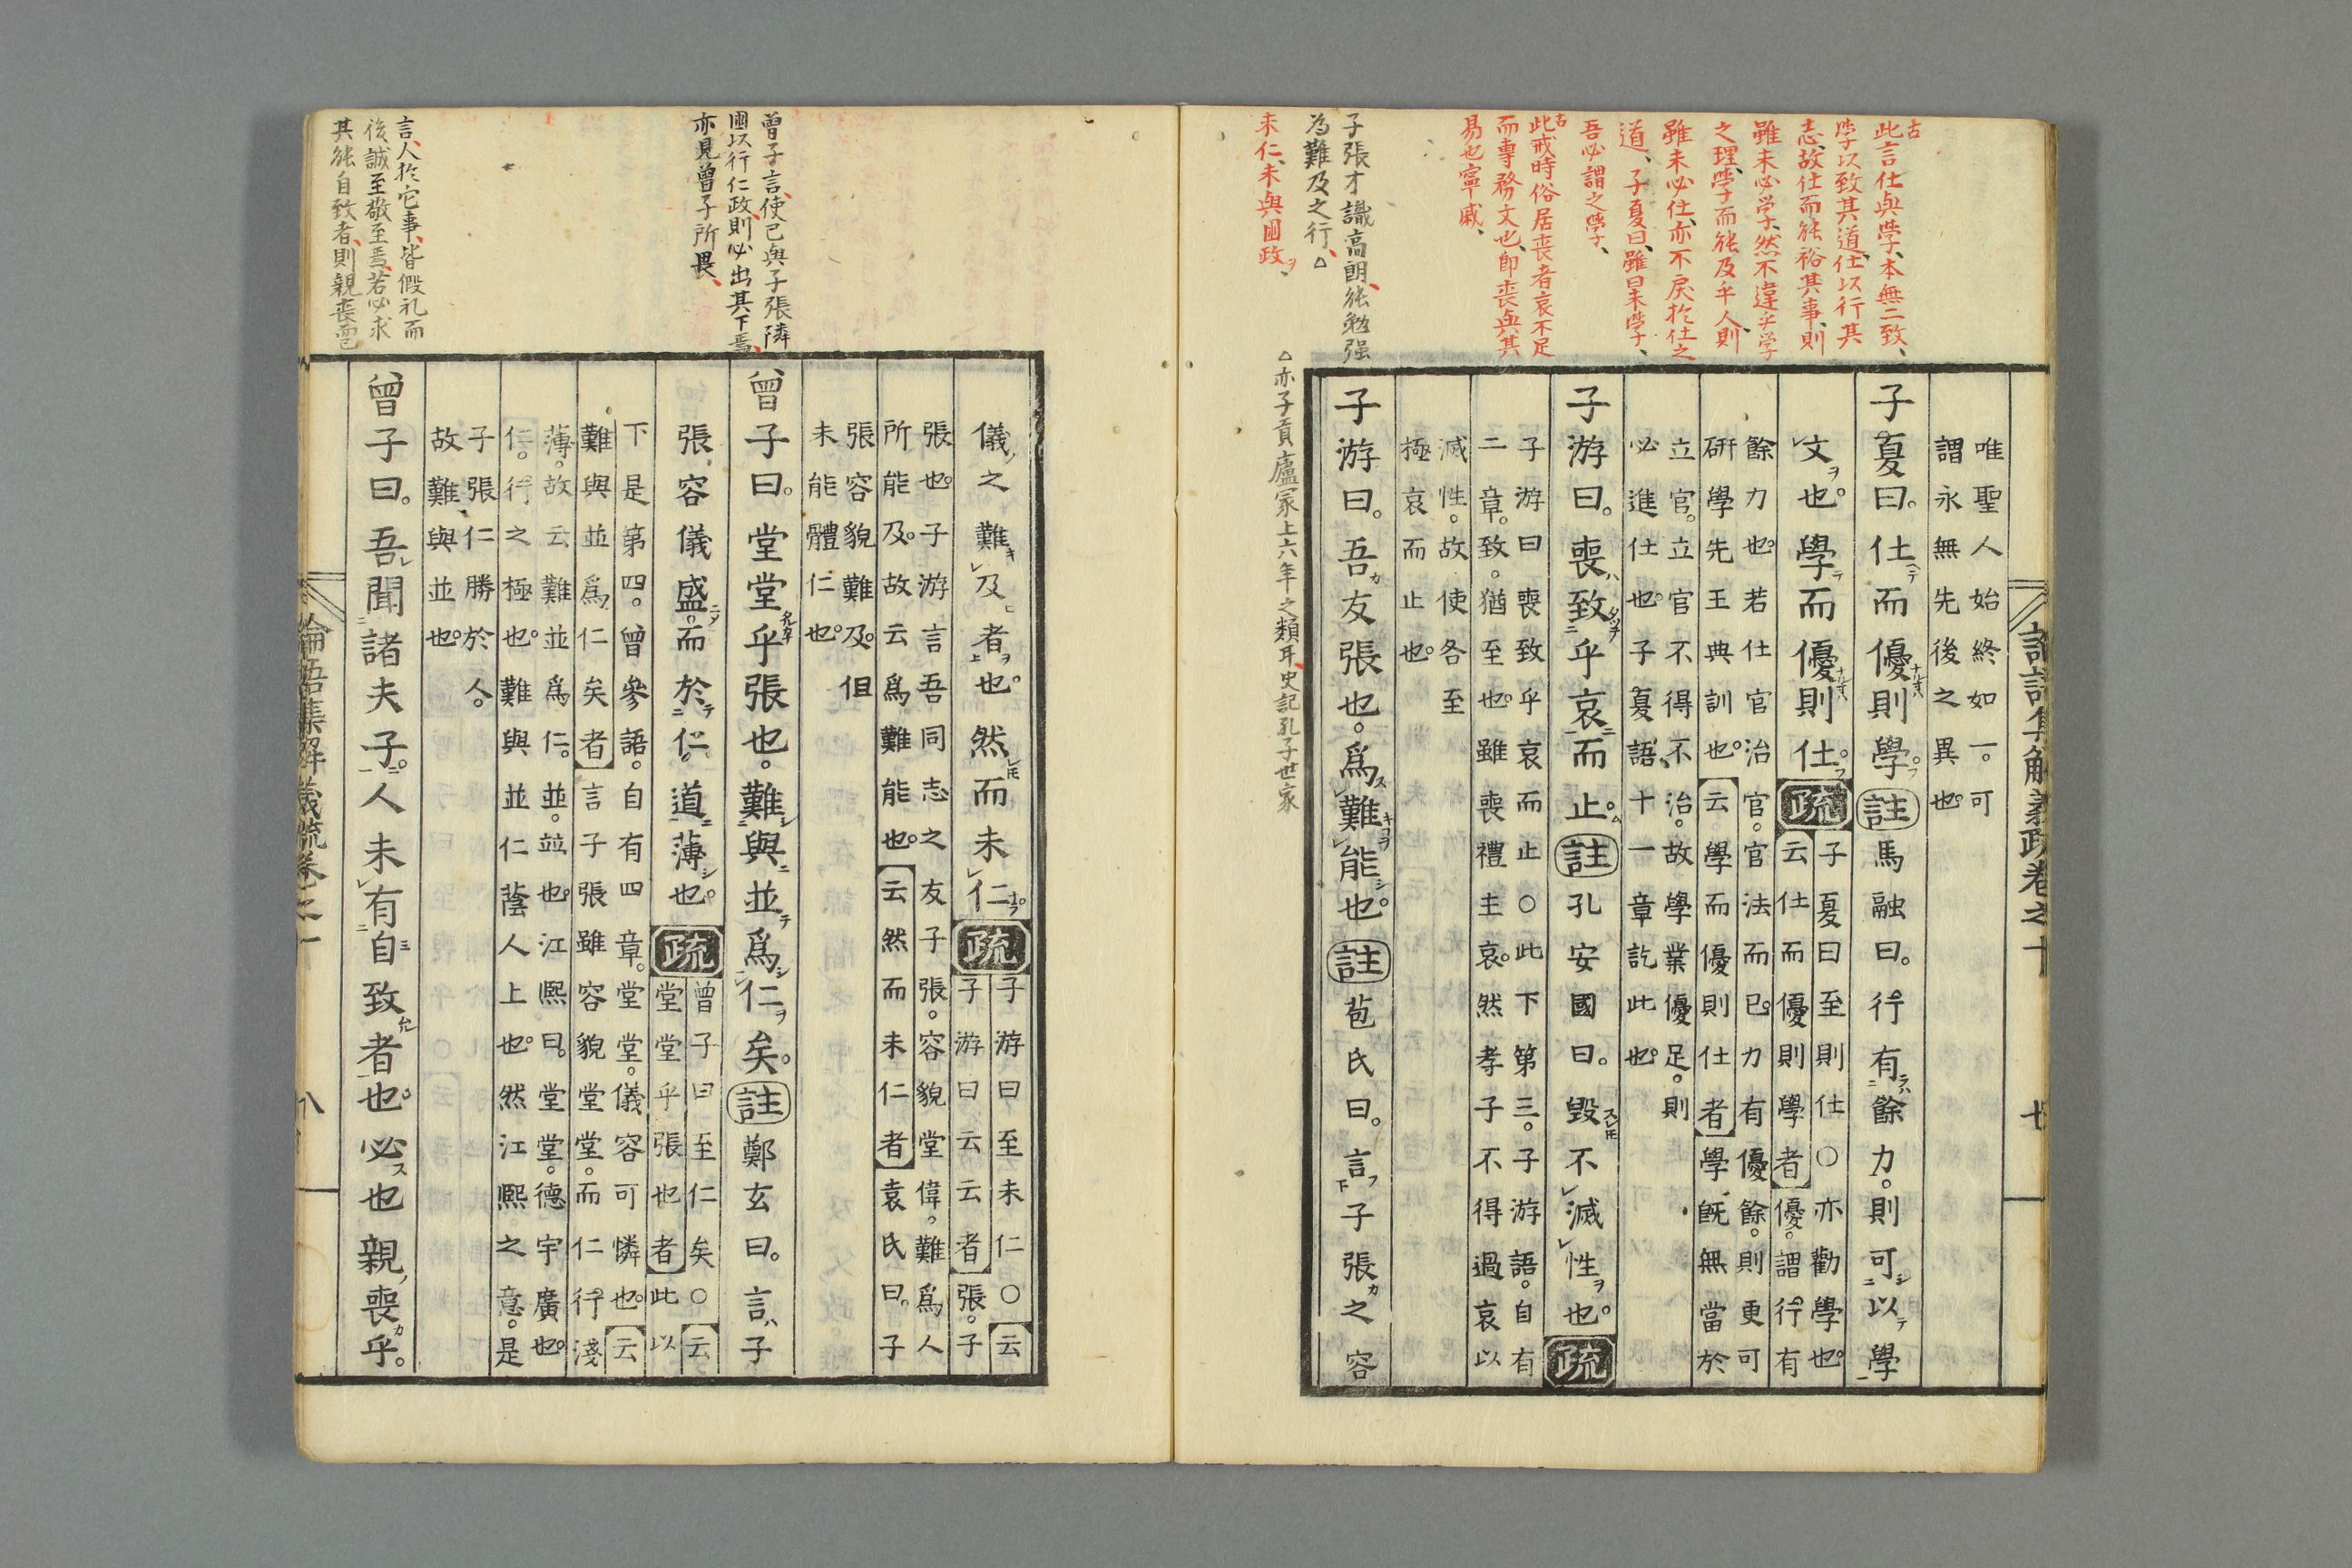 古
此言仕與學、本無二致、
學以致其道、仕以行其
志、故仕而能裕其事、則
雖未必學、然不違乎學
之理、學而能及乎人、則
雖未必仕、亦不戾於仕之
道、子夏曰、雖曰未學、
吾必謂之學、
古
此戒時俗居喪者哀不足
而專務文也、即喪與其
易也寧戚、
子張才識高朗、能勉强
為難及之行、△
未仁、未與國政、
△亦子貢廬冢上六年之類耳、史記孔子世家
唯聖人始終如一。可
謂永無先後之異也。
子夏曰。仕而優則學。註馬融曰。行有餘力。則可以學
文也。學而優則仕。疏
子夏曰至則仕○亦勸學也。
云仕而優則學者優。謂行有
餘力也。若仕官治官。官法而已。力有優餘。則更可
研學先王典訓也。云學而優則仕者學既無當於
立官。立官不得不治。故學業優足。則
必進仕也。子夏語十一章訖此也。
子游曰。喪致乎哀而止。註孔安國曰。毀不滅性也。疏
子游曰喪致乎哀而止○此下第三。子游語。自有
二章。致。猶至也。雖喪禮主哀。然孝子不得過哀以
滅性。故使各至
極哀而止也。
子游曰。吾友張也。爲難能也。註苞氏曰。言子張之容
論語集解義疏卷之十
儀之難及者也。然而未仁。疏
子游曰至未仁○云
子游曰云云者張。子
張也。子游言吾同志之友子張。容貌堂偉。難爲人
所能及。故云爲難能也。云然而未仁者袁氏曰。子
張容貌難及。但
未能體仁也。
曾子曰。堂堂乎張也。難與並爲仁矣。註鄭玄曰。言子
張容儀盛。而於仁。道薄也。疏
曾子曰至仁矣○云
堂堂乎張也者此以
下是第四。曾參語。自有四章。堂堂。儀容可憐也。云
難與並爲仁矣者言子張雖容貌堂堂。而仁行淺
薄。故云難並爲仁。並。竝也。江熙曰。堂堂。德宇。廣也。
仁。行之極也。難與並仁蔭人上也。然江熙。之意。是
子張仁勝於人。
故難與並也。
曾子曰。吾聞諸夫子。人未有自致者也。必也親喪乎。
曾子言、使己與子張隣
國以行仁政、則必出其下焉、
亦見曾子所畏、
言、人於它事、皆假礼而
後誠至敬至焉、若必求
其能自致者、則親喪